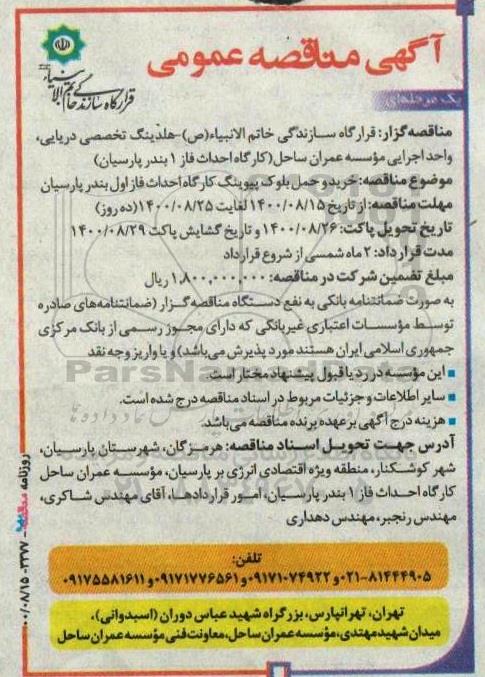 آگهی مناقصه عمومی
قرارگاه سازندگی خاتم الانبیاء
یک مرحله‌ای
مناقصه‌گزار: قرارگاه سازندگی خاتم الانبیاء(ص)-هلدینگ تخصصی دریایی،
واحد اجرایی مؤسسه عمران ساحل (کارگاه احداث فاز ۱ بندر پارسیان)
موضوع مناقصه: خرید و حمل بلوک پیوینگ کارگاه احداث فاز اول بندر پارسیان
مهلت مناقصه: از تاریخ ۱۴۰۰/۰۸/۱۵ لغایت ۱۴۰۰/۰۸/۲۵ (ده روز)
تاریخ تحویل پاکت: ۱۴۰۰/۰۸/۲۶ و تاریخ گشایش پاکت ۱۴۰۰/۰۸/۲۹
مدت قرارداد: ۲ ماه شمسی از شروع قرارداد
مبلغ تضمین شرکت در مناقصه: ۱,۸۰۰,۰۰۰,۰۰۰ ریال
به صورت ضمانتنامه بانکی به نفع دستگاه مناقصه‌گزار (ضمانتنامه‌های صادره
توسط مؤسسات اعتباری غیربانکی که دارای مجوز رسمی از بانک مرکزی
جمهوری اسلامی ایران هستند مورد پذیرش می‌باشد) و یا واریز وجه نقد
■ این مؤسسه در رد یا قبول پیشنهاد مختار است.
■ سایر اطلاعات و جزئیات مربوط در اسناد مناقصه درج شده است.
■ هزینه درج آگهی بر عهده برنده مناقصه می‌باشد.
آدرس جهت تحویل اسناد مناقصه: هرمزگان، شهرستان پارسیان،
شهر کوشکنار، منطقه ویژه اقتصادی انرژی بر پارسیان، مؤسسه عمران ساحل
کارگاه احداث فاز ۱ بندر پارسیان، امور قراردادها، آقای مهندس شاکری،
مهندس رنجبر، مهندس دهداری
تلفن:
۰۲۱-۸۱۴۴۴۹۰۵ و ۰۹۱۷۱۰۷۴۹۲۲ و ۰۹۱۷۱۷۷۶۵۶۱ و ۰۹۱۷۵۵۸۱۶۱۱
تهران، تهرانپارس، بزرگراه شهید عباس دوران (اسبدوانی)،
میدان شهید مهتدی، مؤسسه عمران ساحل، معاونت فنی مؤسسه عمران ساحل
روزنامه مناقصه - ۲۳۷۷ - ۰۰/۰۸/۱۵